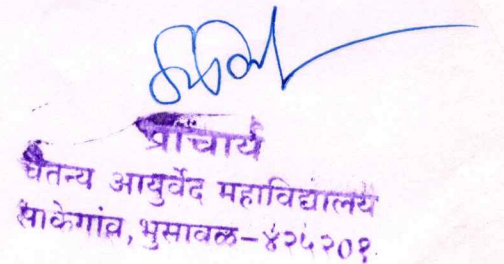 प्राचार्य
चैतन्य आयुर्वेद महाविद्यालय
साकेगांव, भुसावळ-४२५२०१